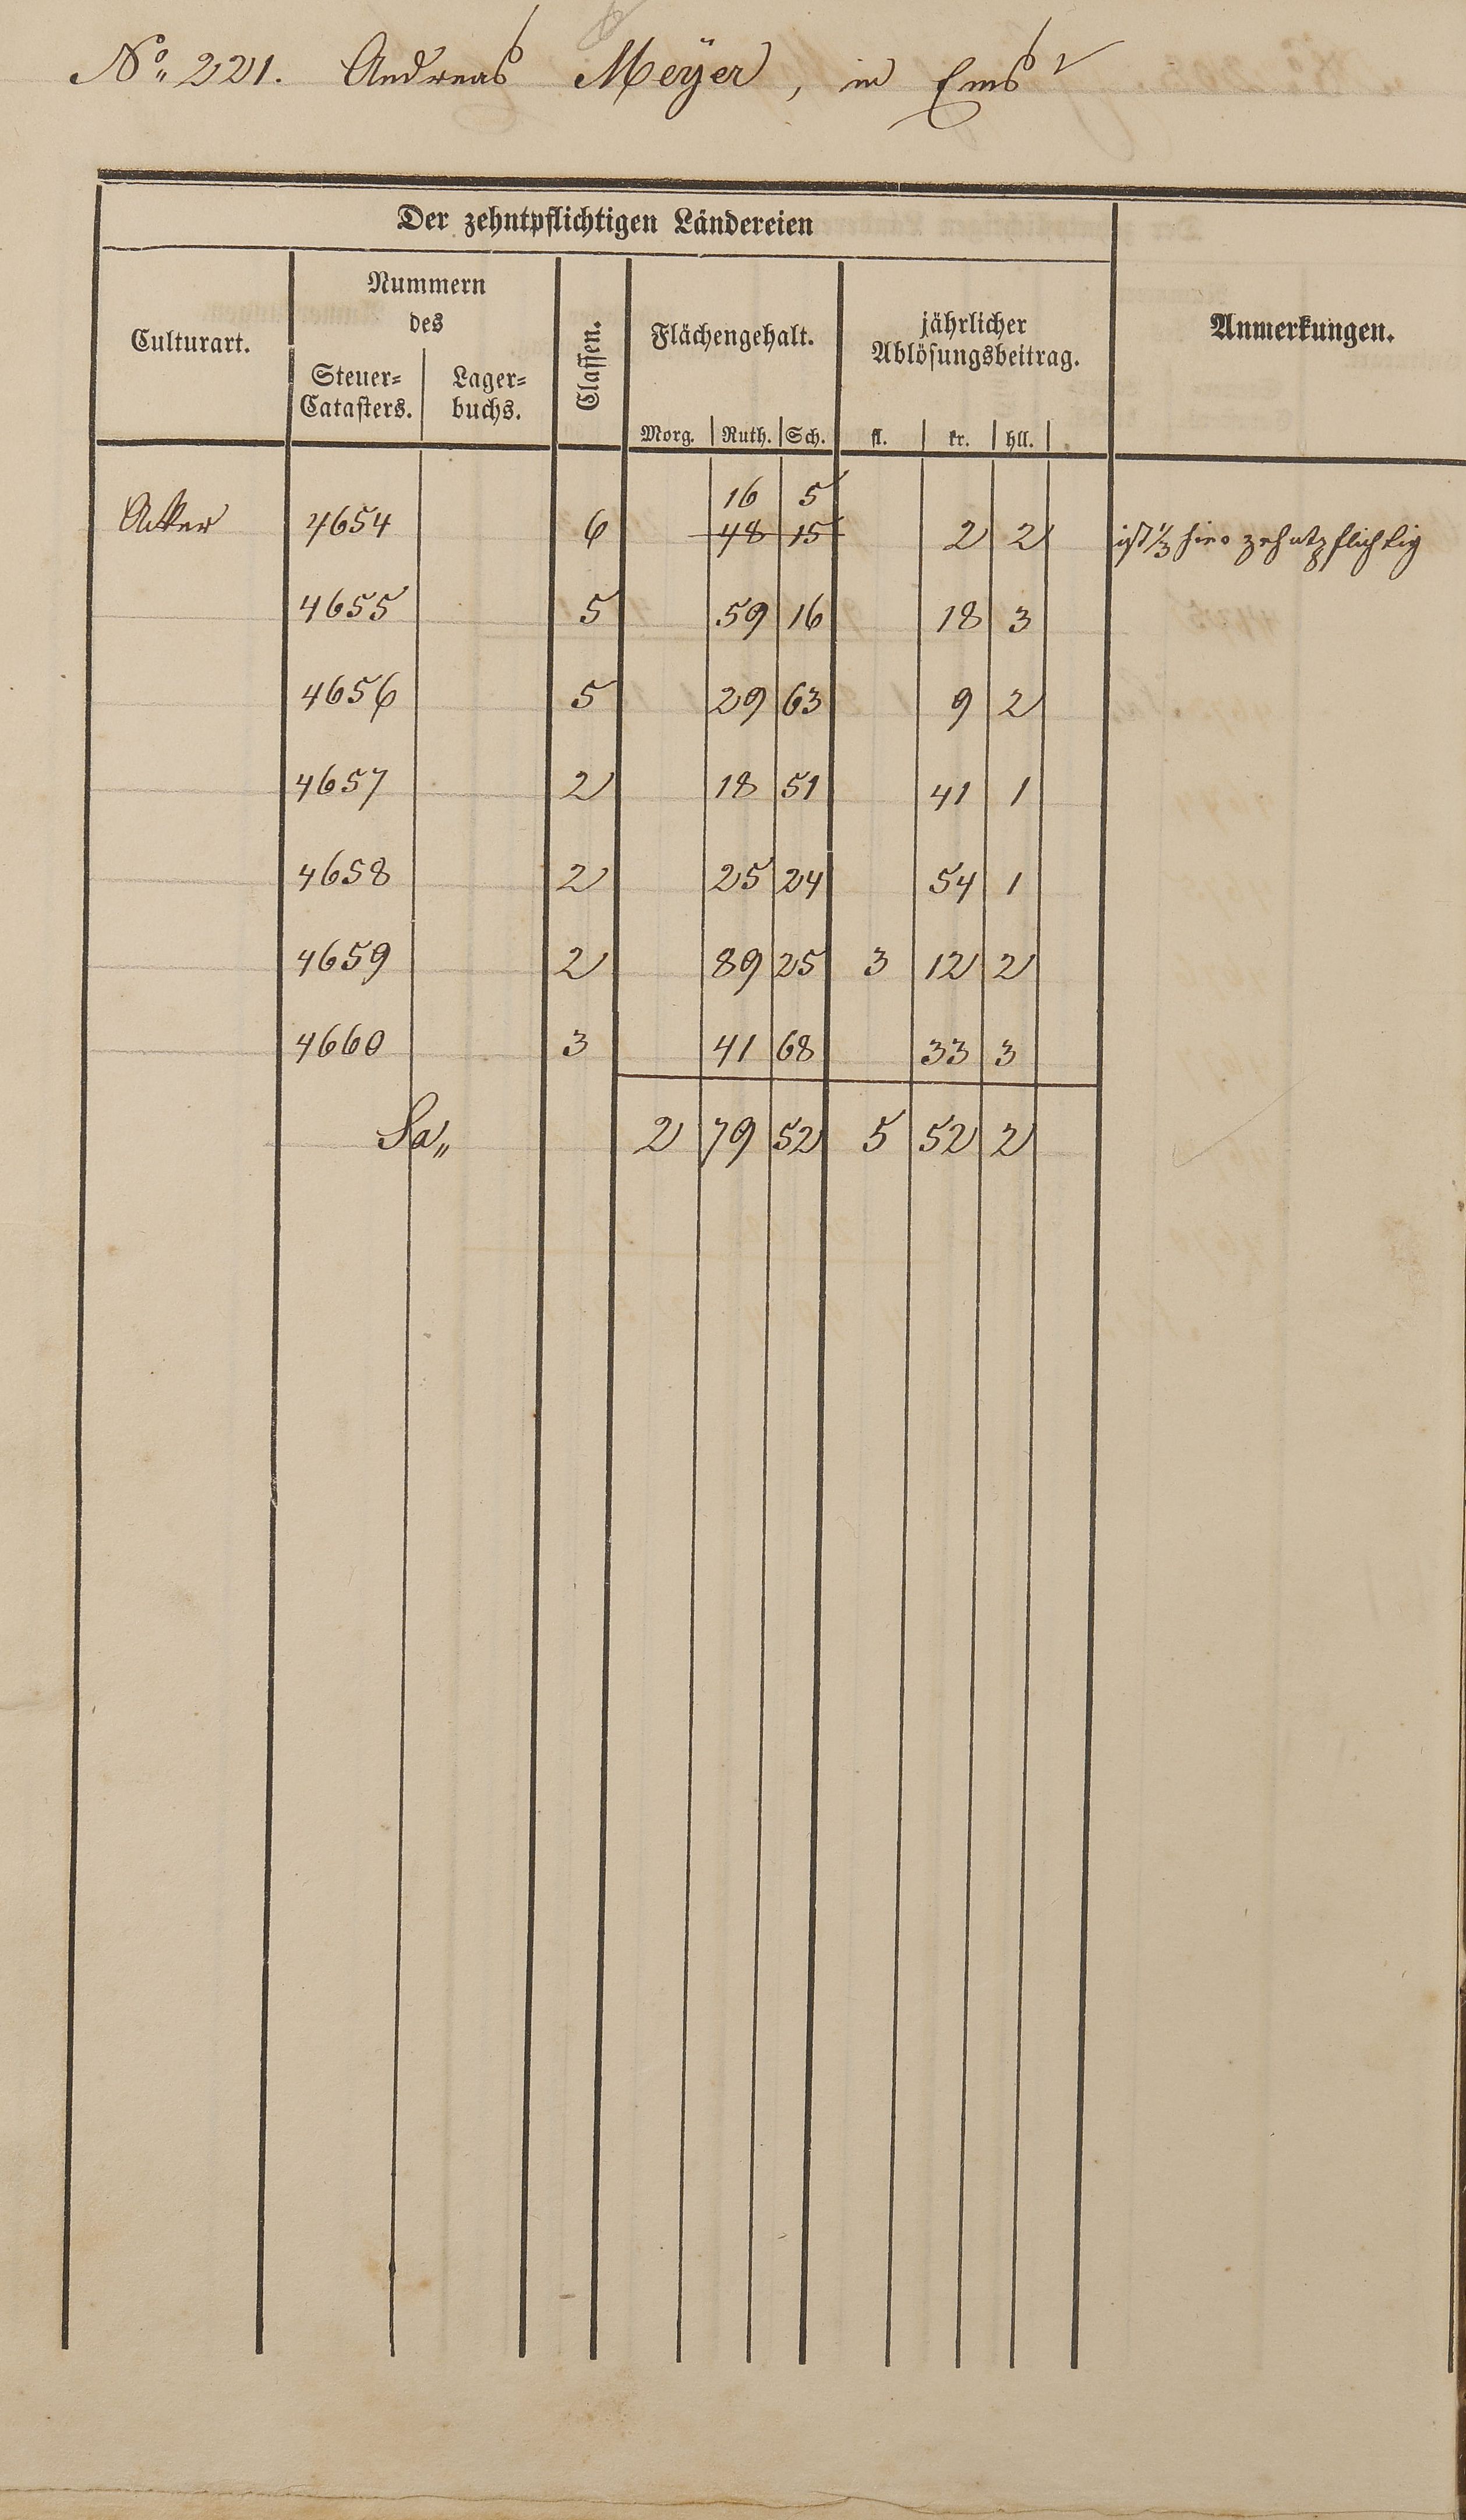 No. 221. Andreas Meÿer, in Ems
Der zehntpflichtigen Ländereien
Culturart.
Nummern
des
Steuer-
Catasters.
Lager-
buchs.
Classen.
Flächengehalt.
Morg. Ruth. Sch.
jährlicher
Ablösungsbeitrag.
fl. kr. hll.
Anmerkungen.
16 5
Acker 4654 6 48 15 2 2 ist 1/3 hier zehntpflichtig
4655 5 59 16 18 3
4656 5 29 63 9 2
4657 2 18 51 41 1
4658 2 25 24 54 1
4659 2 89 25 3 12 2
4660 3 41 68 33 3
Sa„ 2 79 52 5 52 2